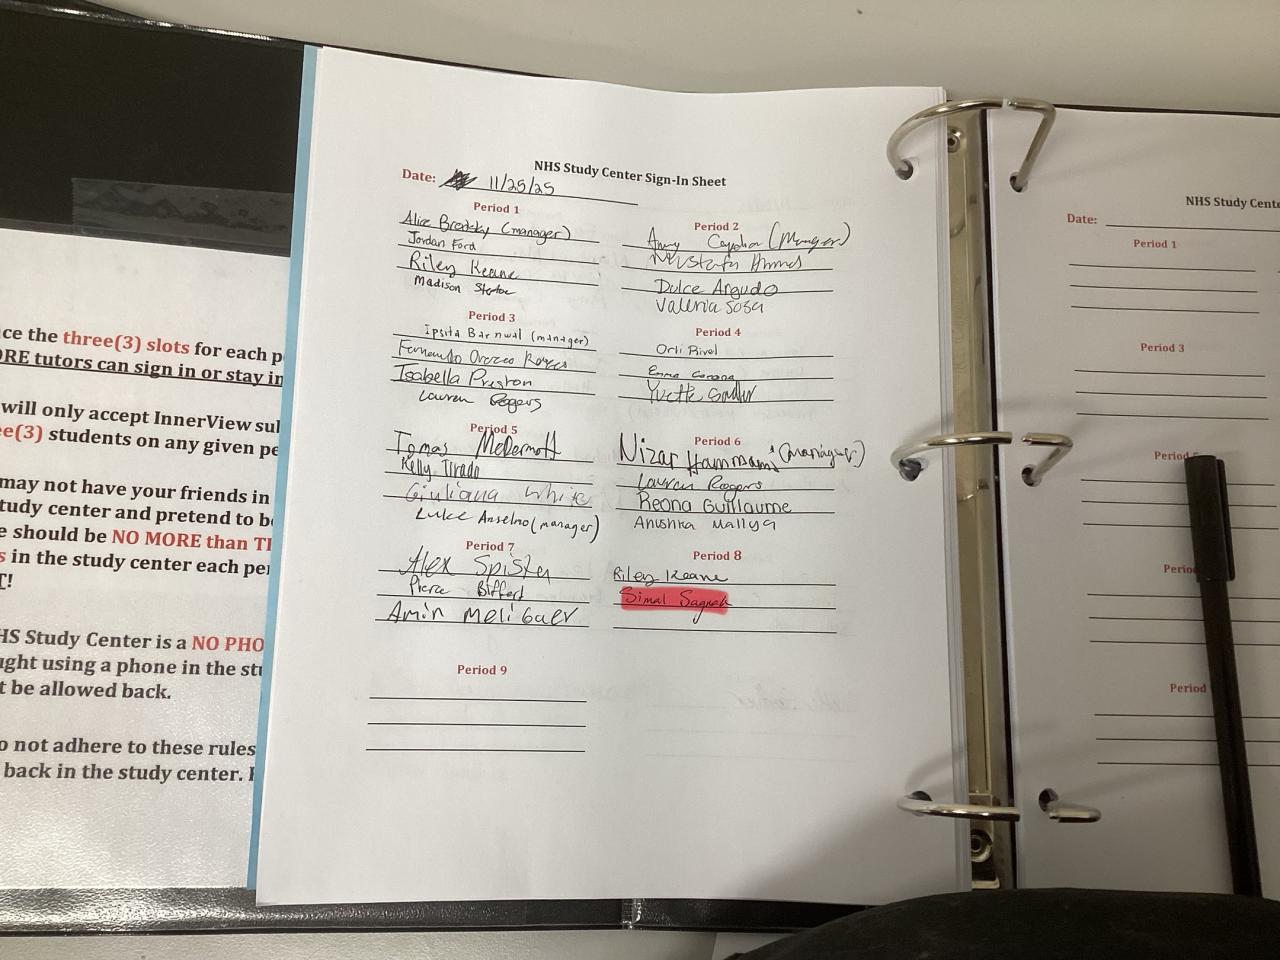 NHS Study Center Sign-In Sheet
Date: 11/25/25
Period 1
Alice Brodsky (manager)
Jordan Ford
Riley Keane
Madison
Period 2
Amy (Manager)
Mustafa Ahmed
Dulce Argudo
Valeria Sosa
Period 3
Ipsita Barnwal (manager)
Fernando Orozco
Isabella Preston
Lauren Rogers
Period 4
Orli Rivel
Emma Corona
Yvette Sadler
Period 5
Tomas McDermott
Kelly Tirado
Giuliana White
Luke Anselmo (manager)
Period 6
Nizar Hammami (manager)
Lauren Rogers
Reona Guillaume
Anushka Mallya
Period 7
Alex
Pierce Bifferd
Amin
Period 8
Riley Keane
Simal
Period 9
ce the three(3) slots for each p
ORE tutors can sign in or stay in
will only accept InnerView sul
ee(3) students on any given pe
may not have your friends in
tudy center and pretend to be
e should be NO MORE than T
s in the study center each per
T!
HS Study Center is a NO PHO
ught using a phone in the stu
t be allowed back.
o not adhere to these rules
back in the study center.
NHS Study Cente
Date:
Period 1
Period 3
Period
Period
Period